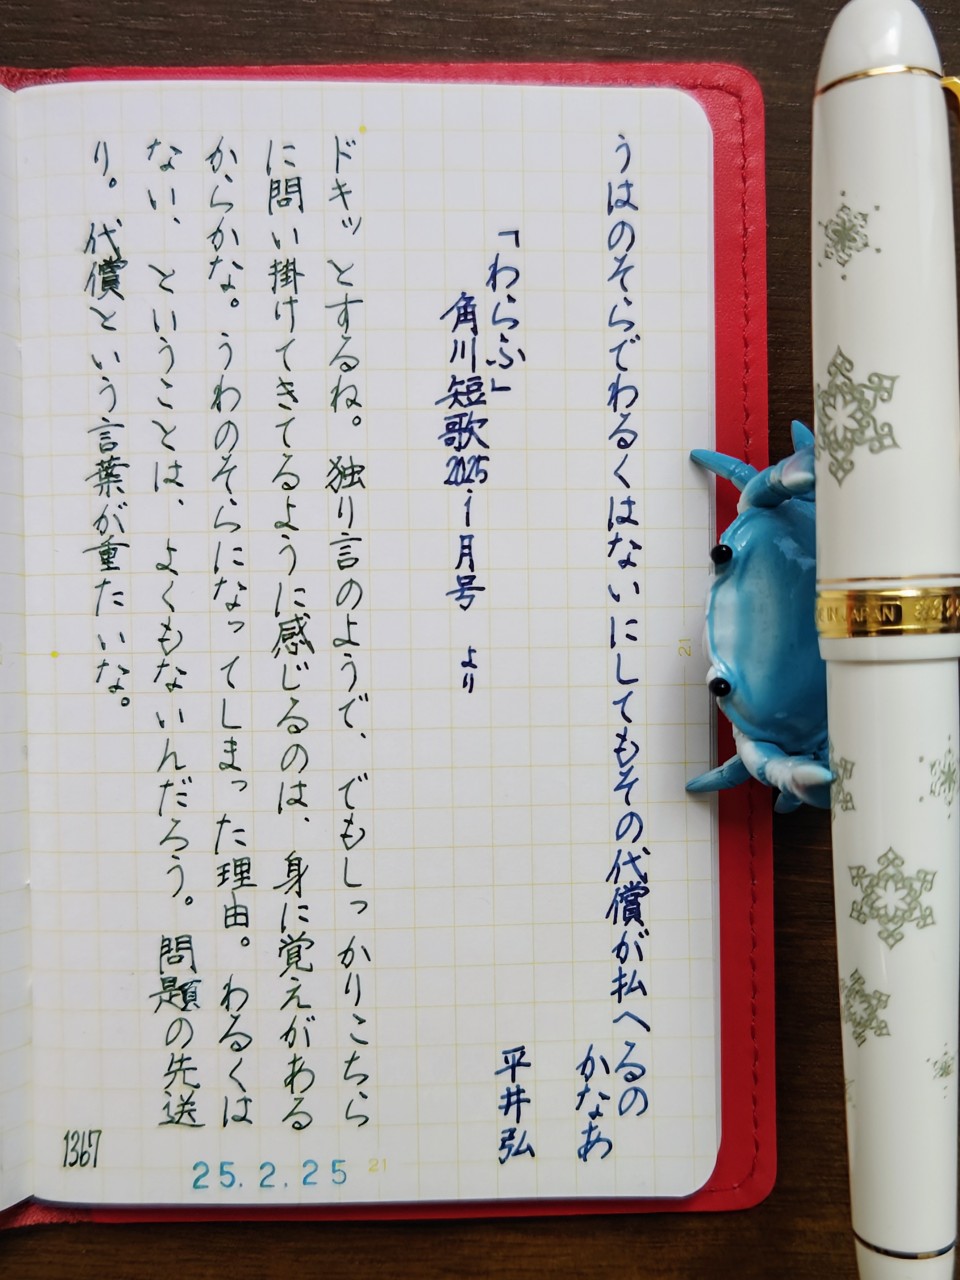 うはのそらでわるくはないにしてもその代償が払へるの
かなあ
平井弘
「わらふ」
角川短歌2025.1月号 より
ドキッとするね。独り言のようで、でもしっかりこちら
に問い掛けてきてるように感じるのは、身に覚えがある
からかな。うわのそらになってしまった理由。わるくは
ない、ということは、よくもないんだろう。問題の先送
り。代償という言葉が重たいな。
1367
25.2.25
21
21
IN JAPAN